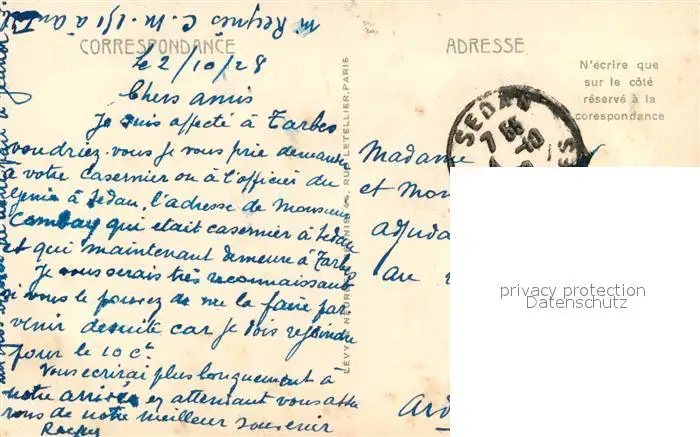 CORRESPONDANCE
le 2/10/28
Chers amis
Je suis affecté à Tarbes
voudriez-vous je vous prie demander
à votre casernier ou à l'officier du
Génie à Sedan, l'adresse de Monsieur
Combay qui etait casernier à Sedan
et qui maintenant demeure à Tarbes
Je vous serais très reconnaissant
si vous le pouvez de me la faire par
venir desuite car je dois rejoindre
pour le 10 ct
Vous ecrirai plus longuement à
notre arrivée en attendant vous assu
rons de notre meilleur souvenir
ADRESSE
N'écrire que
sur le côté
réservé à la
corespondance
SEDAN
7
Madame
et Mon
adjuda
au
Ard
RUE LETELLIER, PARIS
privacy protection
Datenschutz